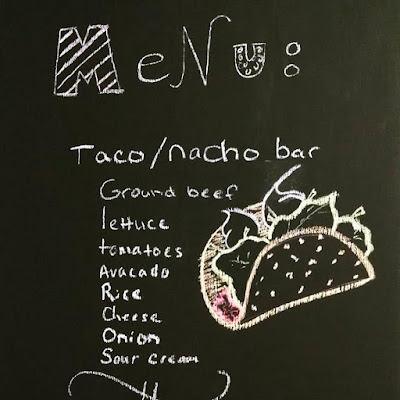 MeNu:
Taco/nacho bar
Ground beef
lettuce
tomatoes
Avacado
Rice
Cheese
Onion
Sour cream